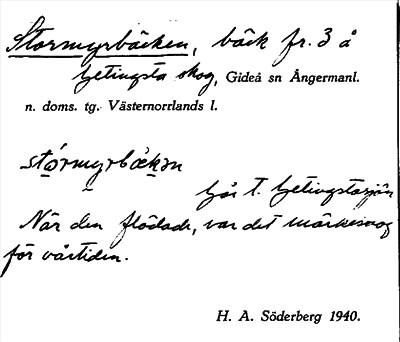 Stormyrbäcken, bäck fr. 3 å
Getingsta skog, Gideå sn Ångermanl.
n. doms. tg. Västernorrlands l.
stórmyrbæ̀kən
Går t. Getingstasjön
När den flödade, var det märkesnog
för vårtiden.
H. A. Söderberg 1940.